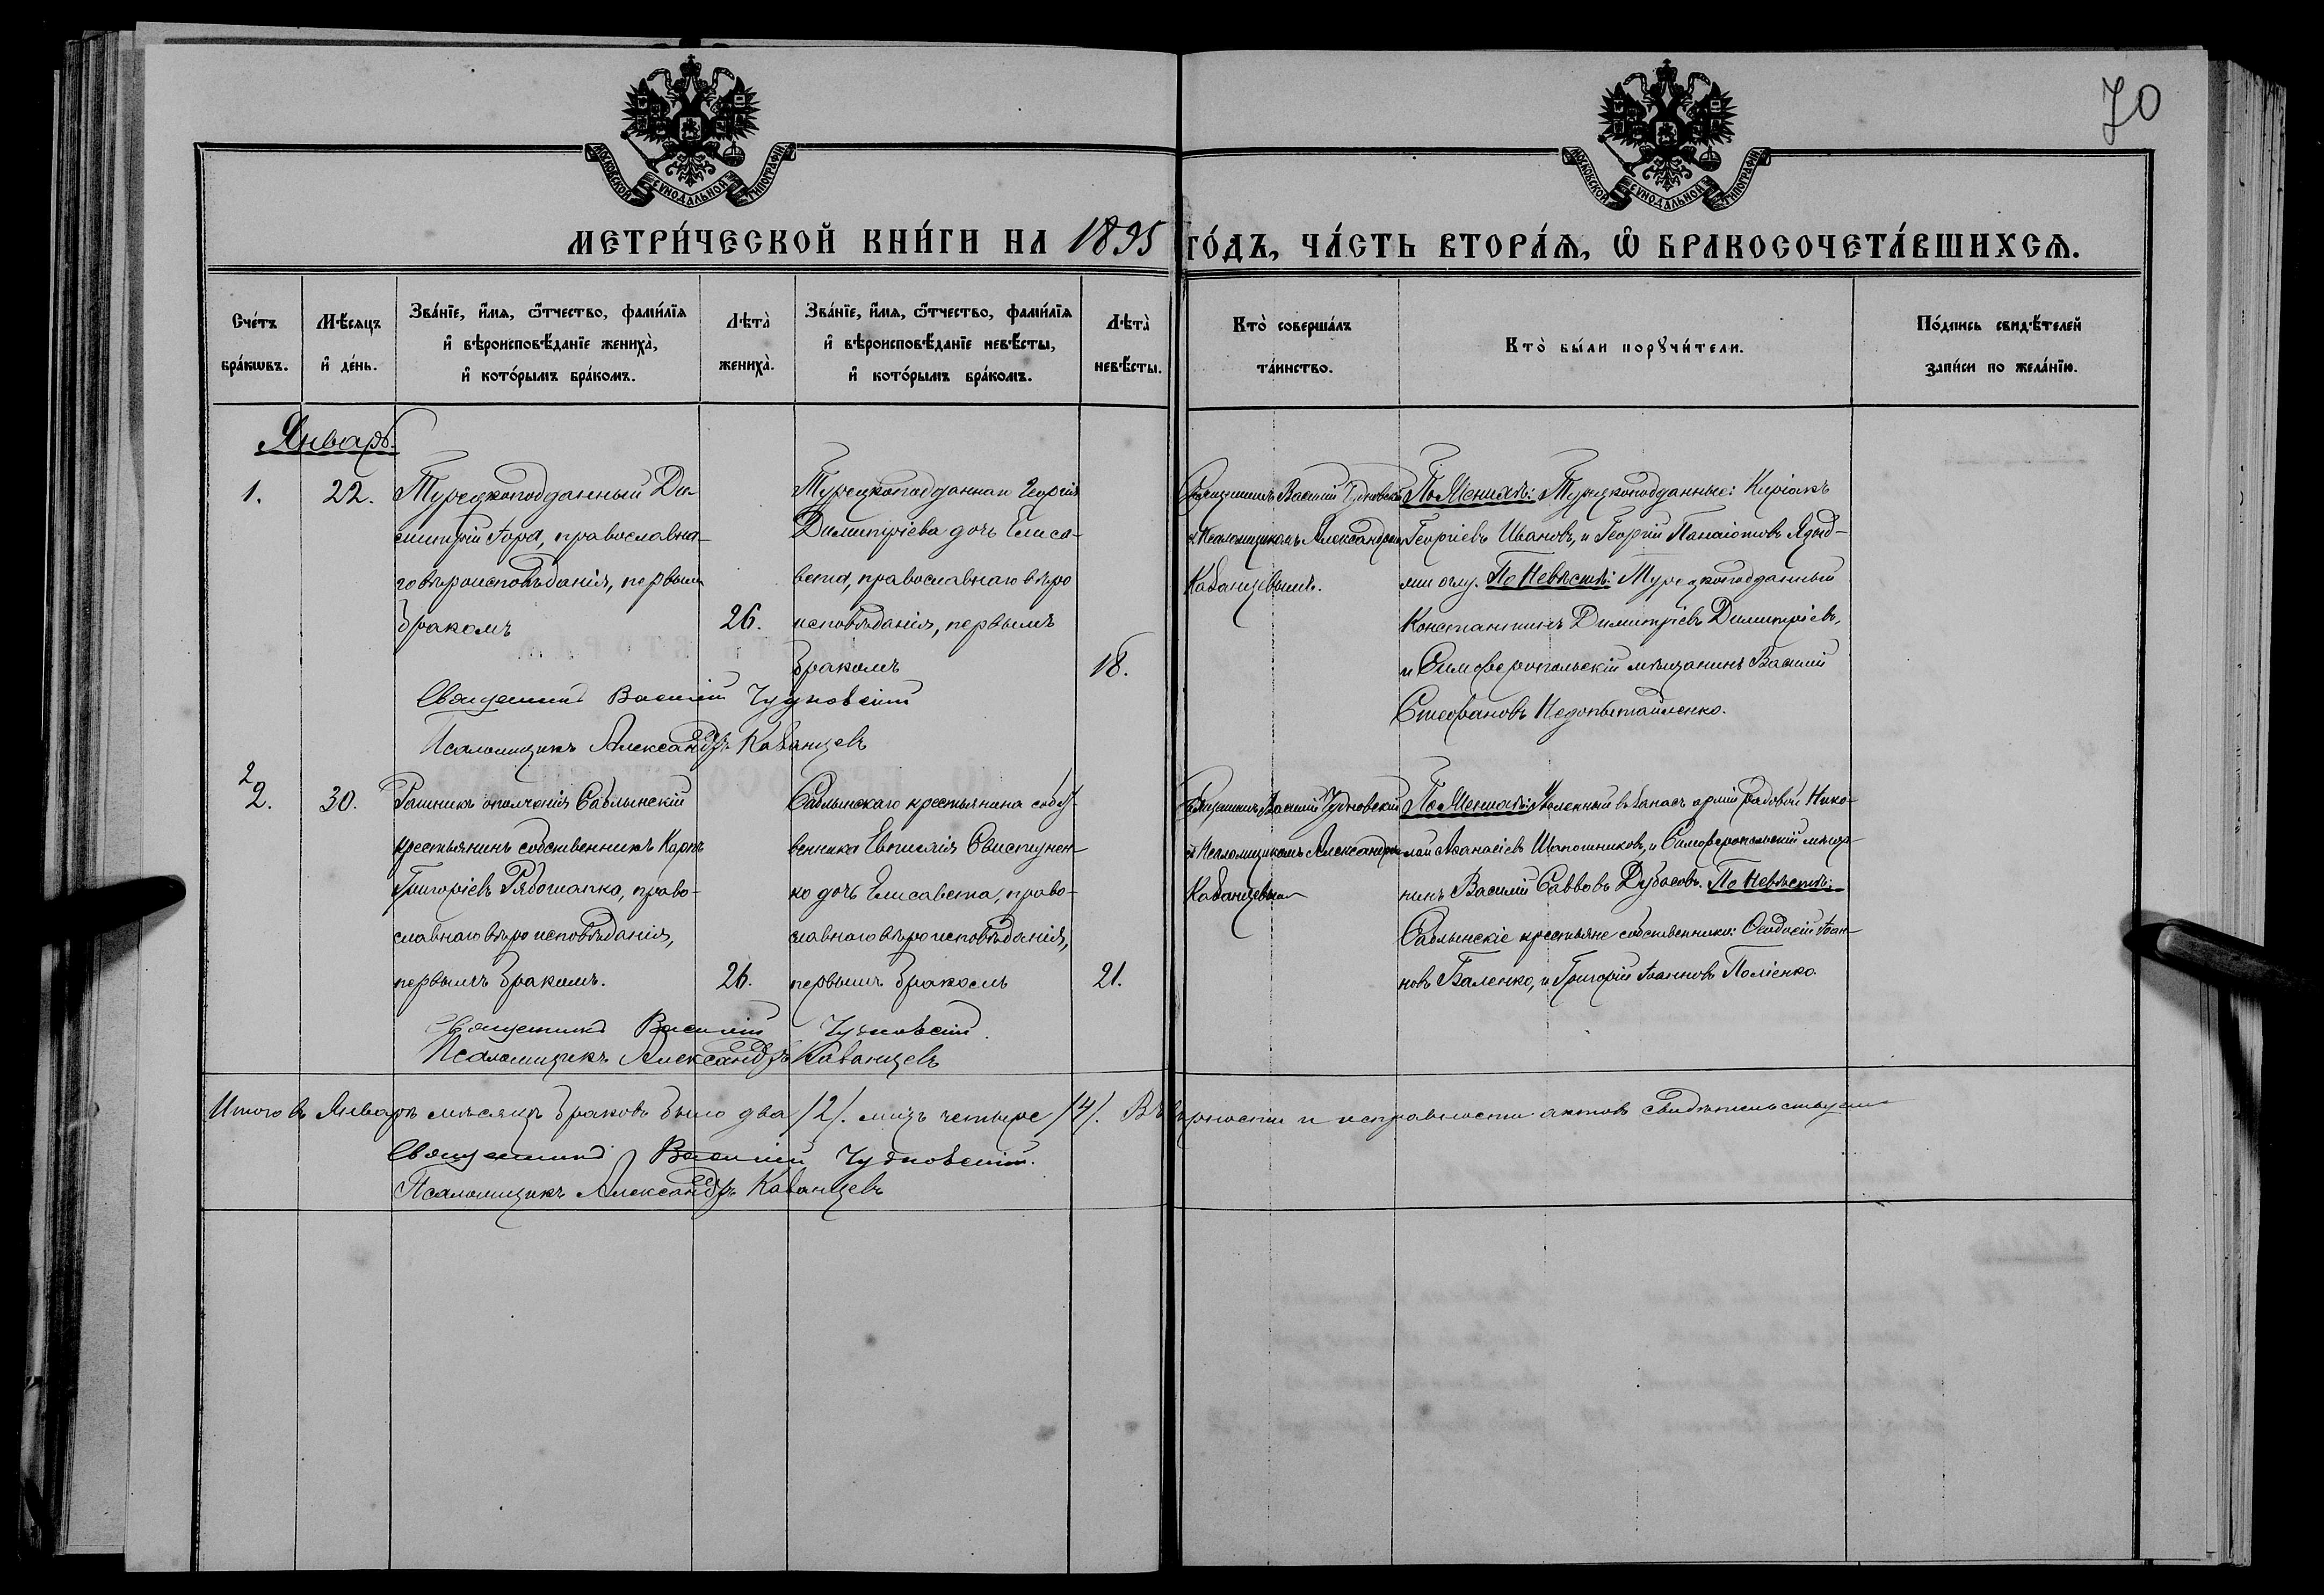 70
МОСКОВСКОЙ СѴНОДАЛЬНОЙ ТИПОГРАФІИ
МОСКОВСКОЙ СѴНОДАЛЬНОЙ ТИПОГРАФІИ
МЕТРИ́ЧЕСКОЙ КНИ́ГИ НА 1895 ГО́ДЪ, ЧА́СТЬ ВТОРА́Ѧ, Ѽ БРАКОСОЧЕТА́ВШИХСѦ.
Сче́тъ бра́кѡвъ.
Мѣ́сѧцъ и҆ де́нь.
Зва́нїе, и҆́мѧ, ѻ҆́тчество, фами́лїѧ
и҆ вѣроисповѣ́данїе жениха̀,
и҆ кото́рымъ бра́комъ.
Лѣта̀ жениха̀.
Зва́нїе, и҆́мѧ, ѻ҆́тчество, фами́лїѧ
и҆ вѣроисповѣ́данїе невѣ́сты,
и҆ кото́рымъ бра́комъ.
Лѣта̀ невѣ́сты.
Кто̀ соверша́лъ та́инство.
Кто̀ бы́ли порꙋчи́тели.
По́дпись свидѣ́телей
за́писи по жела́нїю.
Январь.
1.
22.
Турецкоподданный Ди-
митрій Гора, православна-
го вѣроисповѣданія, первымъ
бракомъ
26.
Турецкоподданнаго Георгія
Димитріева дочь Елиса-
вета, православнаго вѣро
исповѣданія, первымъ
бракомъ
18.
Священникъ Василій Чудновскій
съ Псаломщикомъ Александромъ
Каванцевымъ.
По Женихѣ: Турецкоподданные: Киріакъ
Георгіевъ Ивановъ, и Георгій Панаіотовъ
оглу. По Невѣстѣ: Турецкоподданный
Константинъ Димитріевъ Димитріевъ,
и Симферопольскій мѣщанинъ Василій
Стефановъ Недопытайленко.
Священникъ Василій Чудновскій
Псаломщикъ Александръ Каванцевъ
2
2.
30.
Ратникъ ополченія Саблынскій
крестьянинъ собственникъ Карпъ
Григоріевъ Рябошапко, право-
славнаго вѣроисповѣданія,
первымъ бракомъ.
26.
Саблынскаго крестьянина собст-
венника Евтихія Свистунен-
ко дочь Елисавета, право-
славнаго вѣроисповѣданія,
первымъ бракомъ
21.
Священникъ Василій Чудновскій
съ Псаломщикомъ Александромъ
Каванцевымъ
По Женихѣ: Уволенный въ запасъ арміи рядовой Нико-
лай Аѳанасіевъ Шапошниковъ, и Симферопольскій мѣща-
нинъ Василій Саввовъ Дубасовъ. По Невѣстѣ:
Саблынскіе крестьяне собственники: Ѳеодосій Іоан-
новъ Баленко, и Григорій Іоанновъ Поліенко.
Священникъ Василій Чудновскій.
Псаломщикъ Александръ Каванцевъ
Итого въ Январѣ мѣсяцѣ браковъ было два /2/. лицъ четыре /4/. Въ вѣрности и исправности актовъ свидѣтельствуемъ
Священникъ Василій Чудновскій.
Псаломщикъ Александръ Каванцевъ